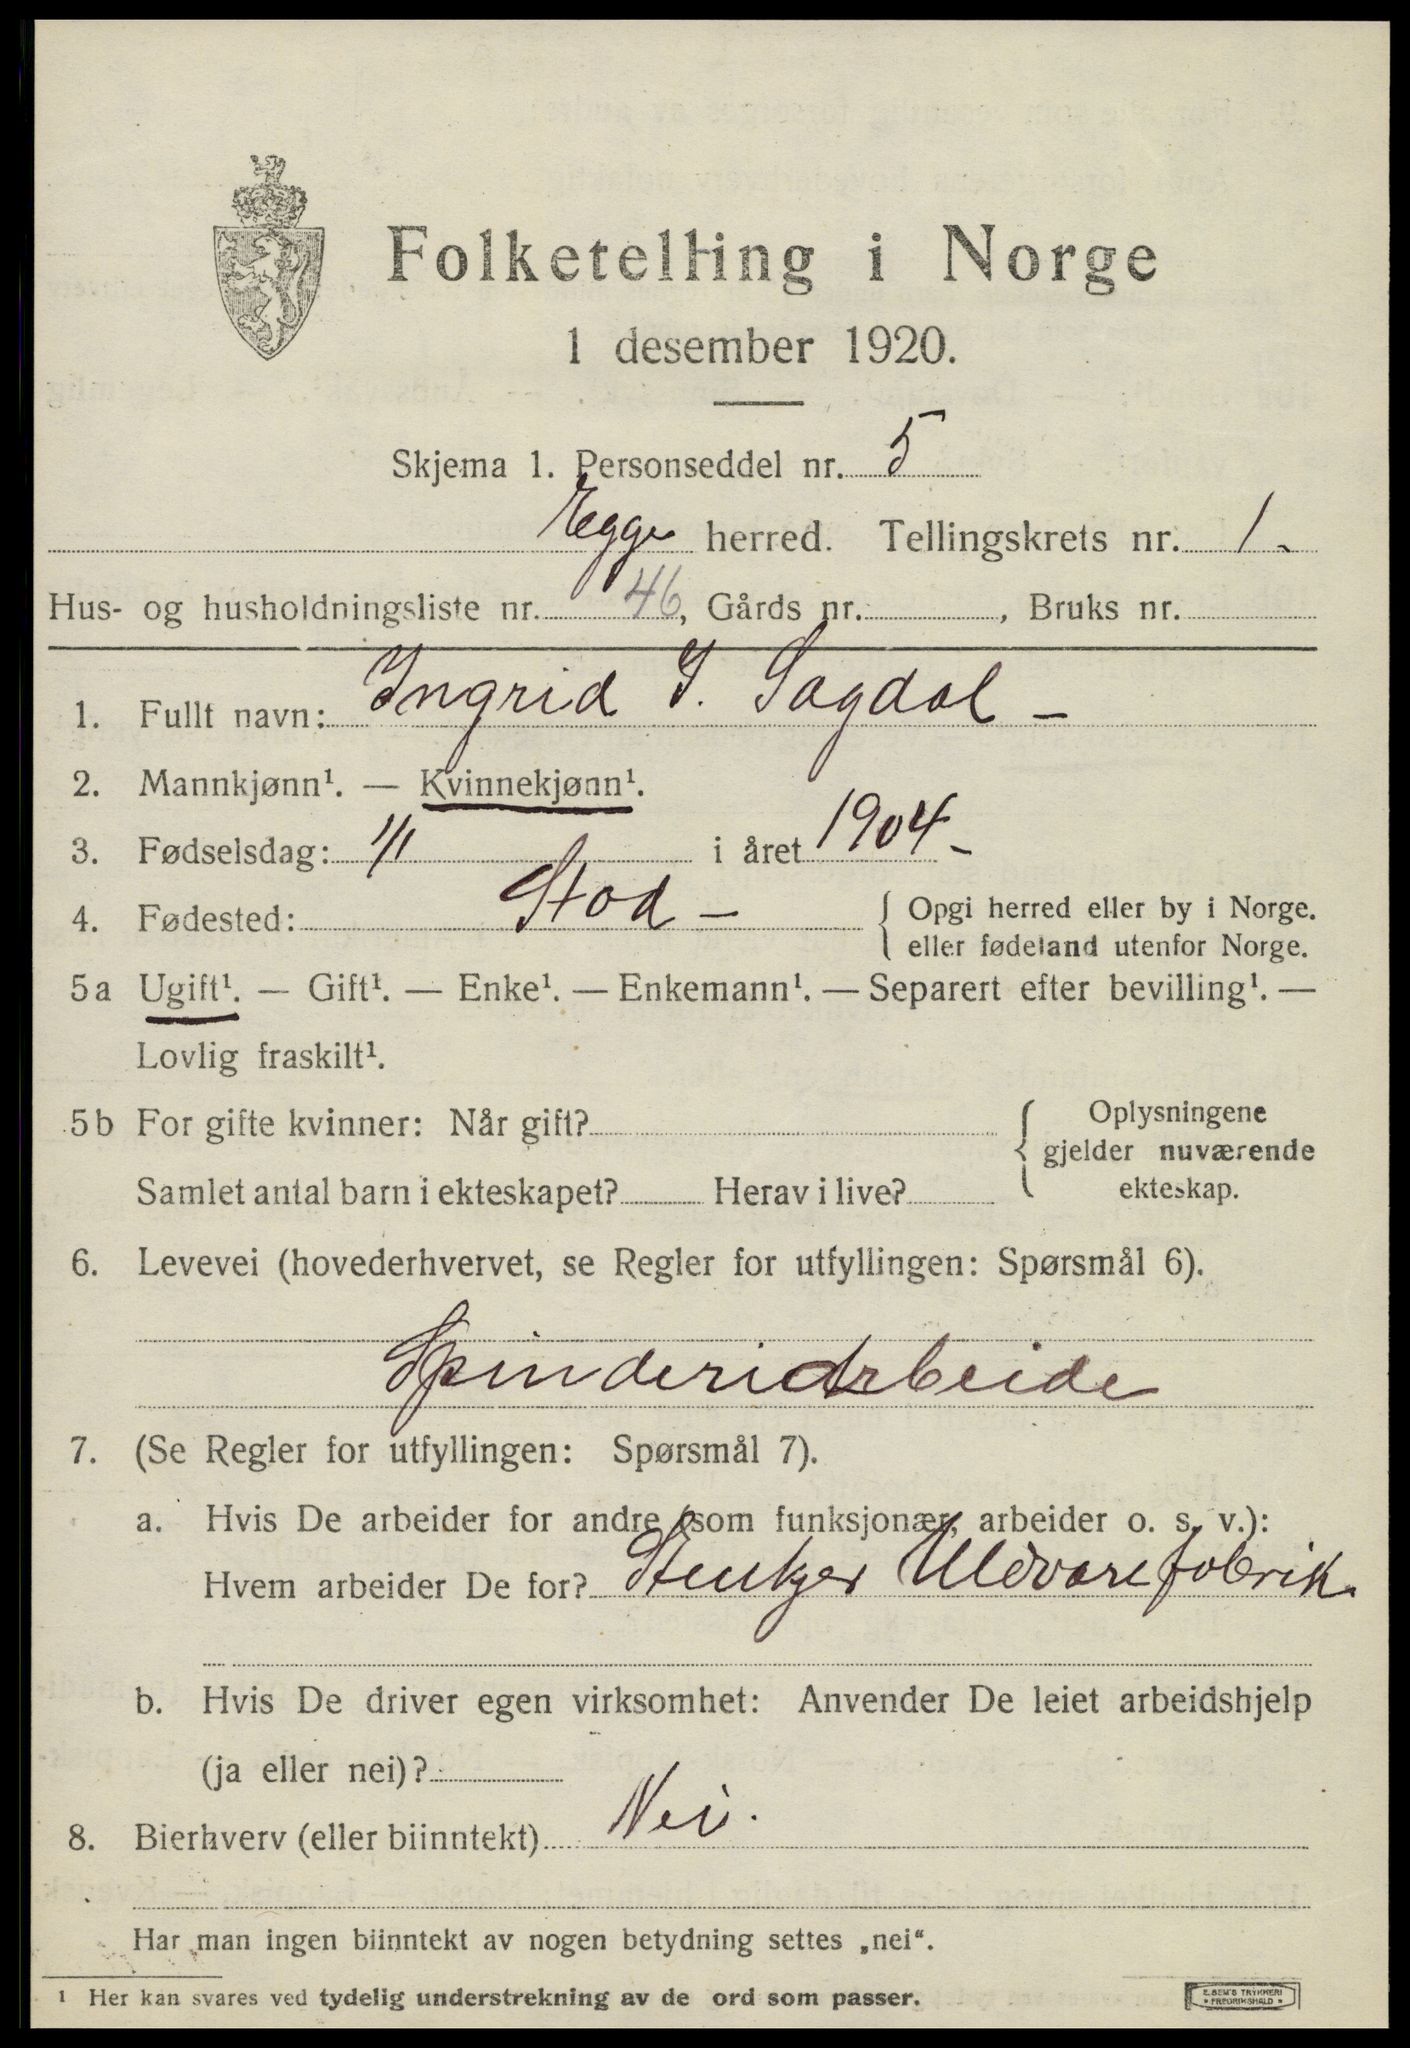 Folketelling i Norge
1 desember 1920.
Skjema 1. Personseddel nr. 5
Egge herred. Tellingskrets nr. 1.
Hus- og husholdningsliste nr. 46, Gårds nr. , Bruks nr.
1. Fullt navn: Ingrid I. Sagdal –
2. Mannkjønn¹. — Kvinnekjønn¹.
3. Fødselsdag: 1/1 i året 1904 –
4. Fødested: Stod – { Opgi herred eller by i Norge.
eller fødeland utenfor Norge.
5a Ugift¹. — Gift¹. — Enke¹. — Enkemann¹. — Separert efter bevilling¹. —
Lovlig fraskilt¹.
5b For gifte kvinner: Når gift? { Oplysningene
gjelder nuværende
ekteskap.
Samlet antal barn i ekteskapet? Herav i live?
6. Levevei (hovederhvervet, se Regler for utfyllingen: Spørsmål 6).
Spinderiarbeide
7. (Se Regler for utfyllingen: Spørsmål 7).
a. Hvis De arbeider for andre (som funksjonær, arbeider o. s. v.):
Hvem arbeider De for? Stenkjer Uldvarefabrik.
b. Hvis De driver egen virksomhet: Anvender De leiet arbeidshjelp
(ja eller nei)?
8. Bierhverv (eller biinntekt) Nei.
Har man ingen biinntekt av nogen betydning settes „nei“.
¹ Her kan svares ved tydelig understrekning av de ord som passer.
E. SEM'S TRYKKERI
• FREDRIKSHALD •